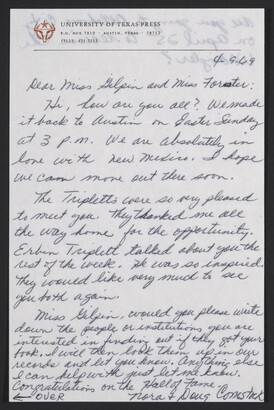 UNIVERSITY OF TEXAS PRESS
P.O. BOX 7819 · AUSTIN, TEXAS · 78712
4-9-69
Dear Miss Gilpin and Miss Forster:
Hi, how are you all? We made
it back to Austin on Easter Sunday
at 3 p.m. We are absolutely in
love with New Mexico. I hope
we can move out there soon.
The Tripletts were so very pleased
to meet you. They thanked me all
the way home for the opportunity.
Erbin Triplett talked about you the
rest of the week. He was so inspired.
They would like very much to see
you both again.
Miss Gilpin, would you please write
down the people or institutions you are
interested in finding out if they got your
book. I will then look them up in our
records and let you know. Anything else
I can help with just let me know.
Congratulations on the Hall of Fame
← OVER Nora & Doug Comstock